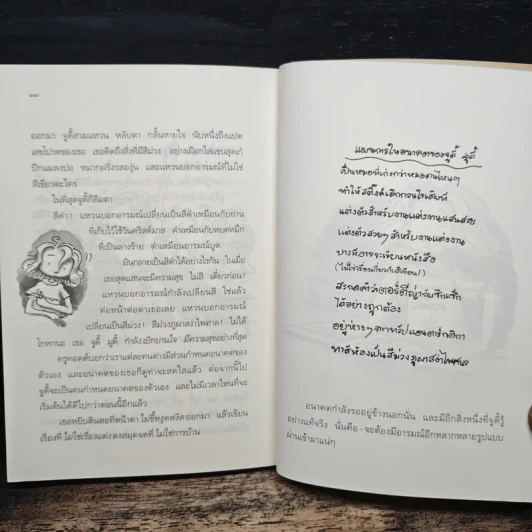 ออกมา จูดี้สวมแหวน หลับตา กลั้นหายใจ นับหนึ่งถึงแปด
เลขโปรดของเธอ เธอคิดถึงสิ่งที่มีสีม่วง อย่างเผือกใส่แซนสุดเก๋
ปีกแมลงปอ หมากฝรั่งรสองุ่น และแหวนบอกอารมณ์ที่ไม่ใช่
สีเขียวตะไคร่
ในที่สุดจูดี้ก็ลืมตา
สีดำ! แหวนบอกอารมณ์เปลี่ยนเป็นสีดำเหมือนกับถ่าน
ที่เก็บไว้ใช้วันคริสต์มาส ดำเหมือนกับหยดหมึก
ที่เป็นลางร้าย ดำเหมือนอารมณ์บูด
มันกลายเป็นสีดำได้อย่างไรกัน ในเมื่อ
เธอสุดแสนจะมีความสุข ไม่สิ เดี๋ยวก่อน!
แหวนบอกอารมณ์กำลังเปลี่ยนสี ใช่แล้ว
ต่อหน้าต่อตาเธอเลย แหวนบอกอารมณ์
เปลี่ยนเป็นสีม่วง! สีม่วงภูผาสง่าไพศาล! ไม่ได้
โกหกนะ เธอ จูดี้ มูดี้ กำลังเบิกบานใจ มีความสุขอย่างที่สุด
ครูทอดด์บอกว่าเราแต่ละคนต่างมีส่วนกำหนดอนาคตของ
ตัวเอง และอนาคตของเธอก็ดูท่าจะสดใสแล้ว ต่อจากนี้ไป
จูดี้จะเป็นคนกำหนดอนาคตของตัวเอง และไม่มีเวลาไหนที่จะ
เริ่มต้นได้ดีไปกว่าตอนนี้อีกแล้ว
เธอหยิบดินสอที่หน้าตาไม่ขี้หงุดหงิดออกมา แล้วเขียน
เรื่องที่ไม่ใช่เรื่องแต่งลงสมุดจดที่ไม่ใช่การบ้าน
แผนการในอนาคตของจูดี้ มูดี้
เป็นหมอที่เก่งกว่าหมอคนไหนๆ
ทำให้สติ๊งค์เลิกกวนใจเสียที
แต่งตัวสำหรับงานแต่งงานแสนสวย
แต่งตัวสวยๆ สำหรับงานแต่งงาน
บางทีอาจจะเขียนหนังสือ
(ไม่ใช่เรื่องเกี่ยวกับสีเตือน!)
สะกดคำว่า
ได้อย่างถูกต้อง
อยู่ห่างๆ จาก
ทาสีห้องเป็นสีม่วงภูผาสง่าไพศาล
อนาคตกำลังรออยู่ข้างนอกนั่น และมีอีกสิ่งหนึ่งที่จูดี้รู้
อย่างแท้จริง นั่นคือ - จะต้องมีอารมณ์อีกหลากหลายรูปแบบ
ผ่านเข้ามาแน่ๆ